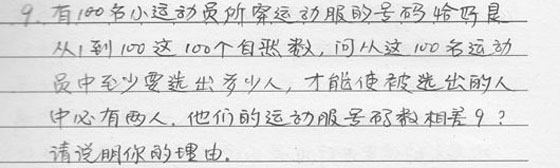 9. 有100名小运动员所穿运动服的号码恰好是
从1到100这100个自然数,问从这100名运动
员中至少要选出多少人,才能使被选出的人
中必有两人,他们的运动服号码数相差9?
请说明你的理由.